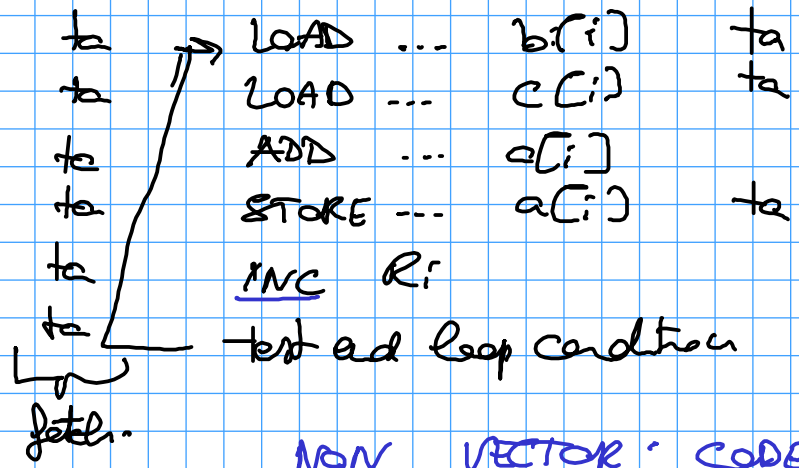 ta LOAD ... b[i] ta
ta LOAD ... c[i] ta
ta ADD ... a[i]
ta STORE ... a[i] ta
ta INC Ri
ta test end loop condition
fetch.
NON VECTOR CODE